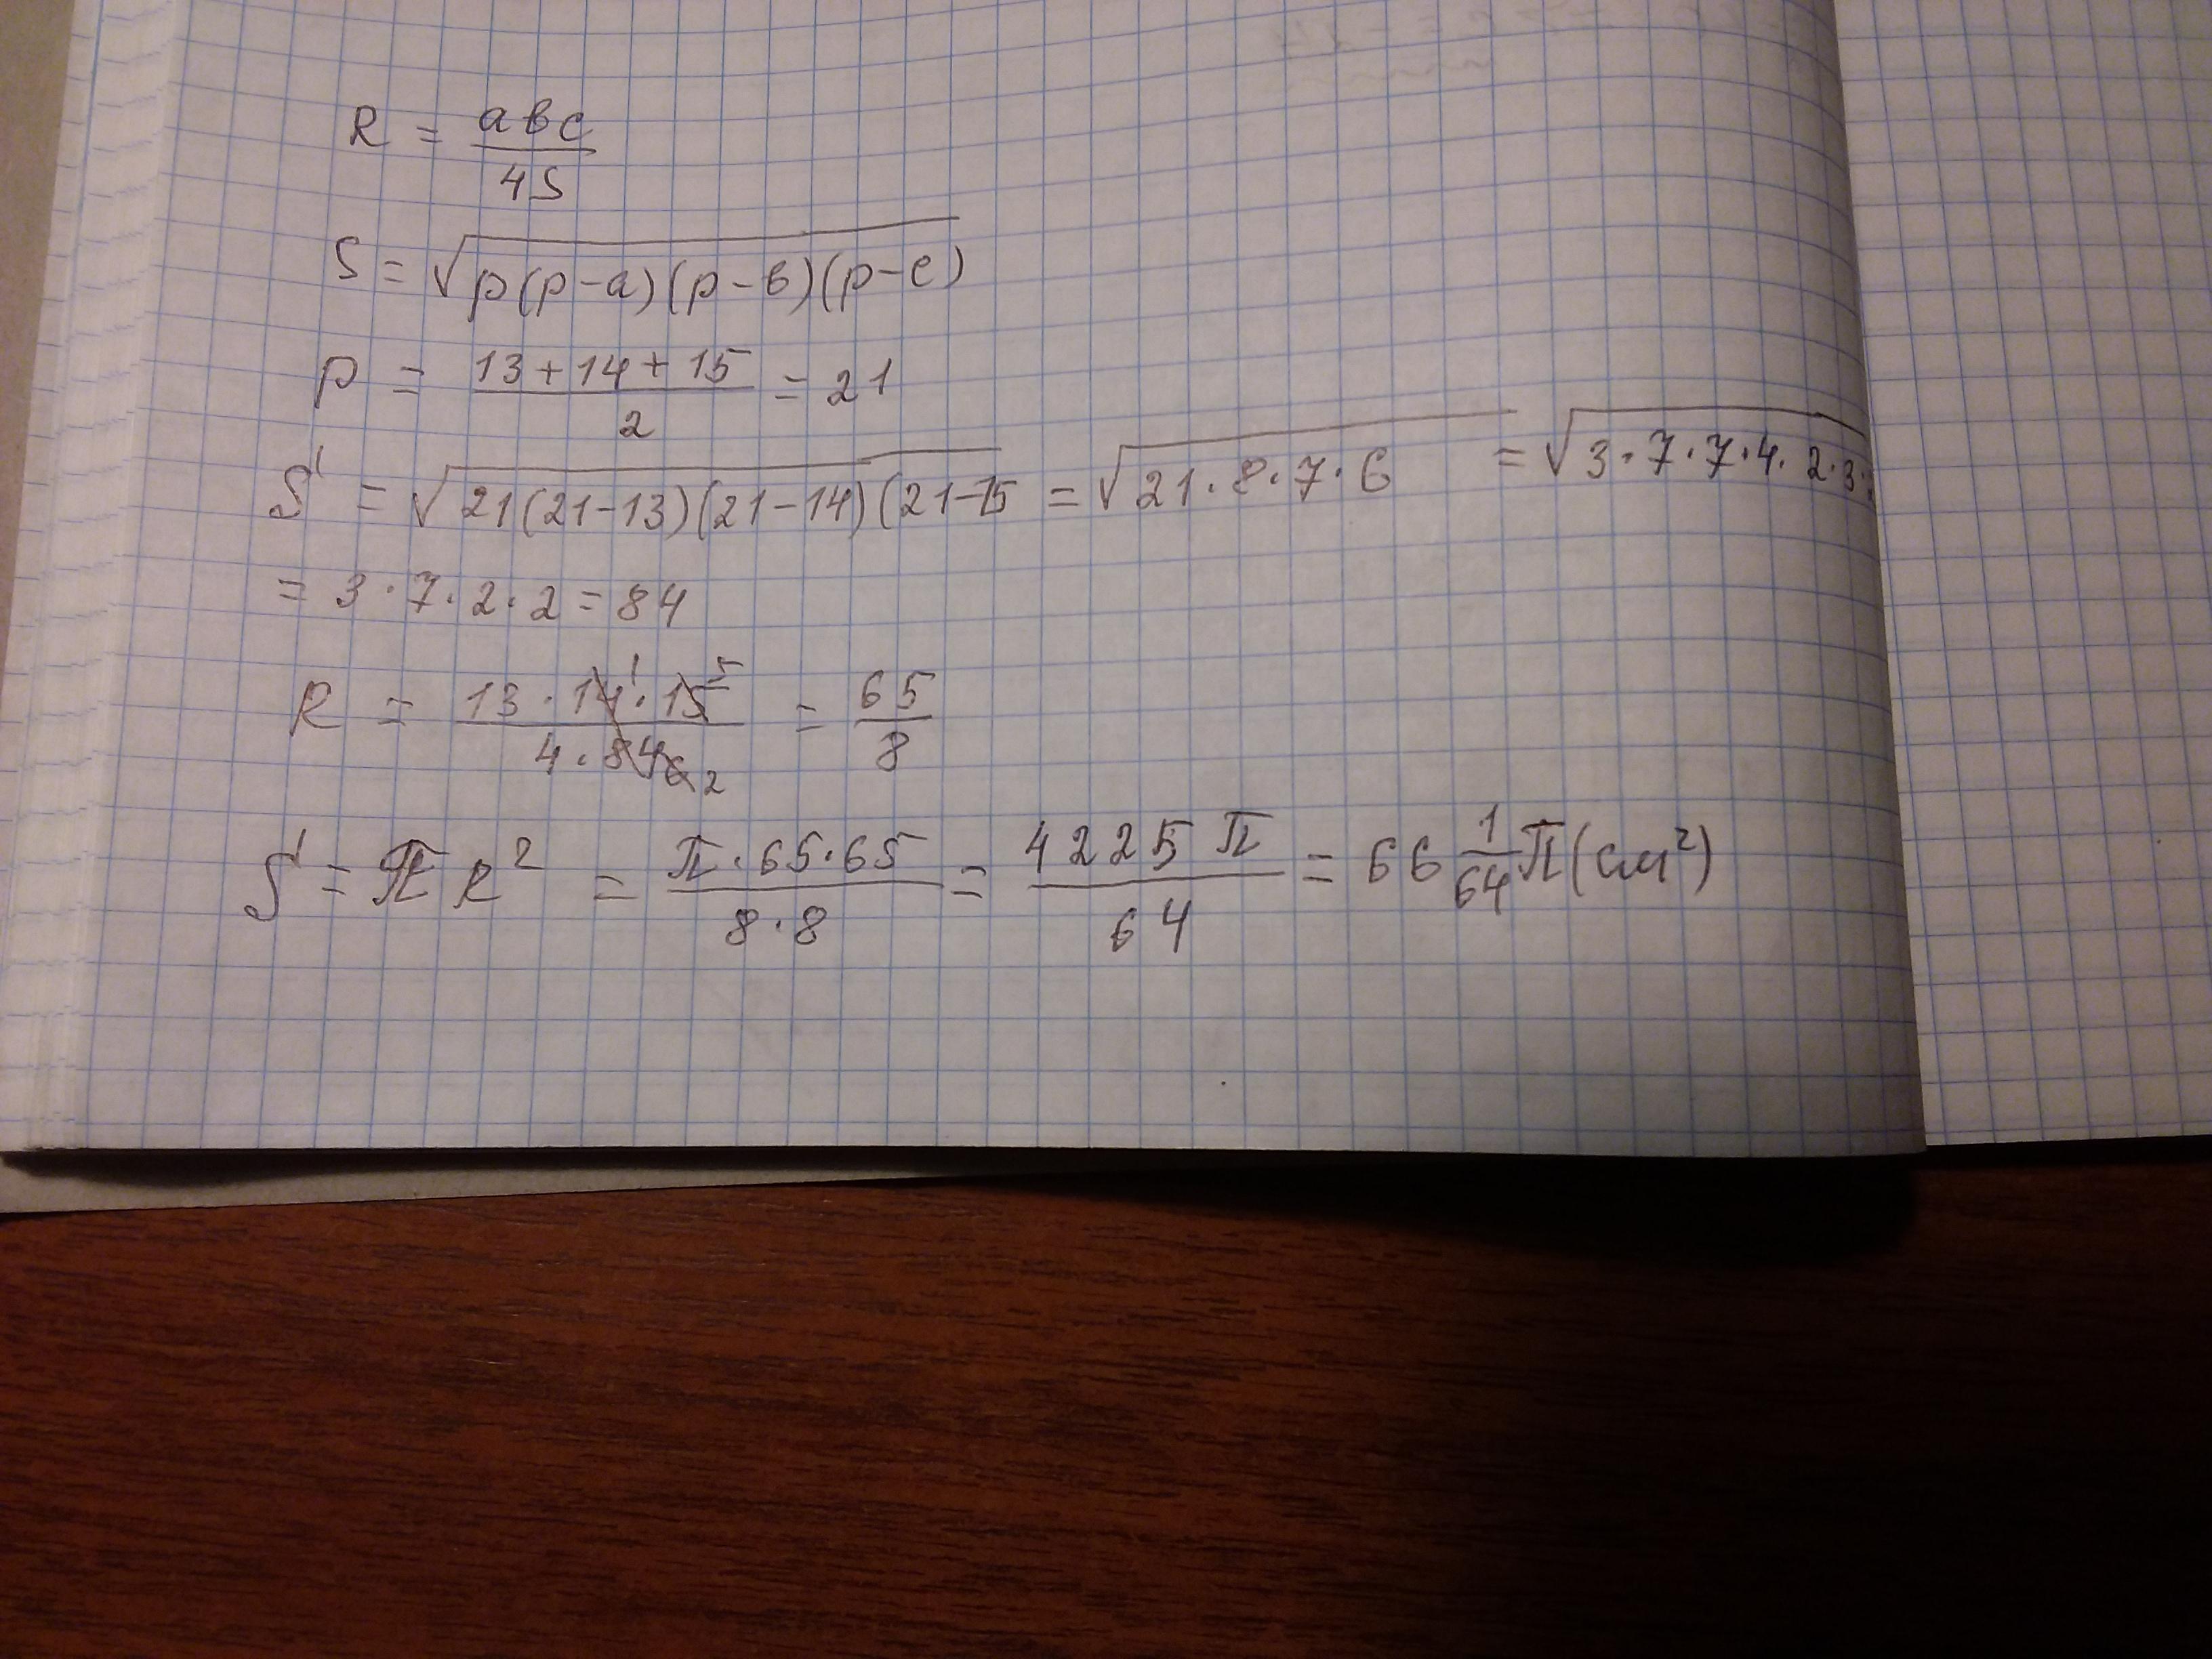 R = abc / 4S
S = √p(p-a)(p-b)(p-c)
p = 13+14+15 / 2 = 21
S = √21(21-13)(21-14)(21-15 = √21·8·7·6 = √3·7·7·4·2·3·
= 3·7·2·2 = 84
R = 13·14 1·15 5 / 4·84 6 2 = 65 / 8
S = π R² = π·65·65 / 8·8 = 4225 π / 64 = 66 1/64 π (см²)